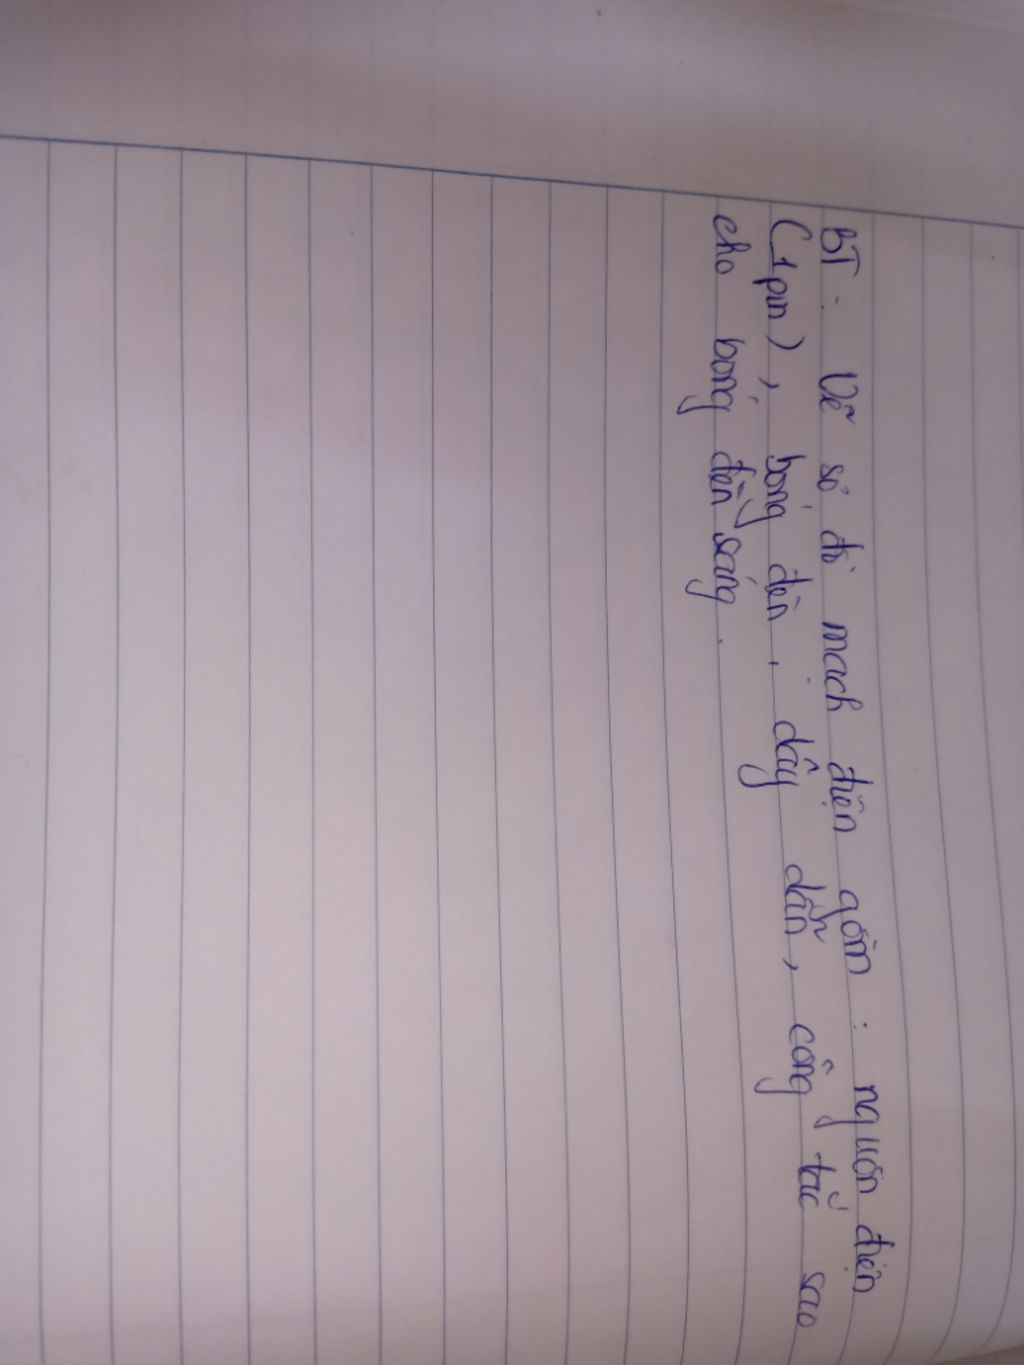 BT : Vẽ sơ đồ mạch điện gồm : nguồn điện
(1 pin), bóng đèn, dây dẫn, công tắc sao
cho bóng đèn sáng.